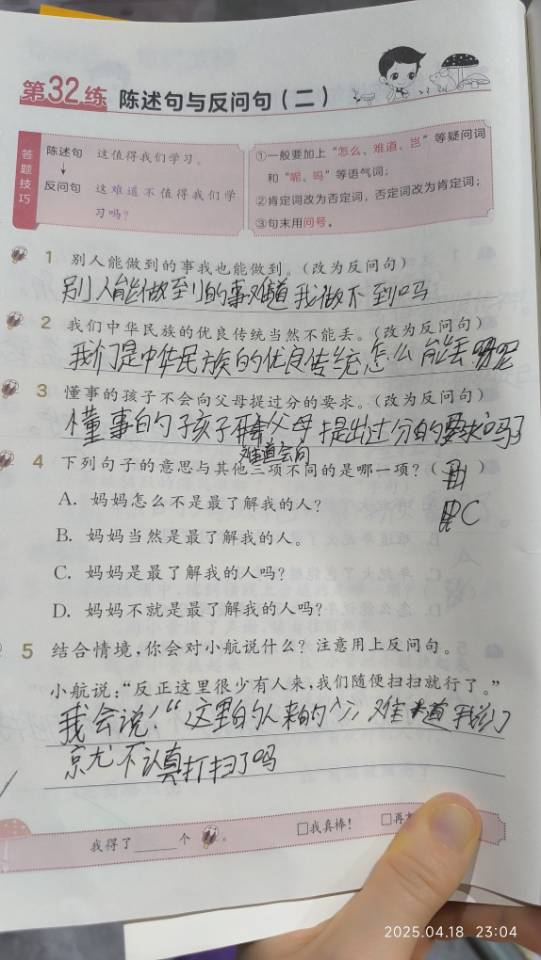 第32练 陈述句与反问句（二）
答题技巧
陈述句 这值得我们学习。
↓
反问句 这难道不值得我们学
习吗？
①一般要加上“怎么、难道、岂”等疑问词
和“呢、吗”等语气词；
②肯定词改为否定词，否定词改为肯定词；
③句末用问号。
1 别人能做到的事我也能做到。（改为反问句）
别人能做到的事难道我做不到吗
2 我们中华民族的优良传统当然不能丢。（改为反问句）
我们是中华民族的优良传统怎么能丢呢
3 懂事的孩子不会向父母提过分的要求。（改为反问句）
懂事的孩子 父母提出过分的要求吗
难道会向
4 下列句子的意思与其他三项不同的是哪一项？（ ）
C
A. 妈妈怎么不是最了解我的人？
B. 妈妈当然是最了解我的人。
C. 妈妈是最了解我的人吗？
D. 妈妈不就是最了解我的人吗？
5 结合情境，你会对小航说什么？注意用上反问句。
小航说：“反正这里很少有人来，我们随便扫扫就行了。”
我会说！“这里的人来的少，难道我们
就不认真打扫了吗
我得了 个 。
□我真棒！ □再
2025.04.18 23:04